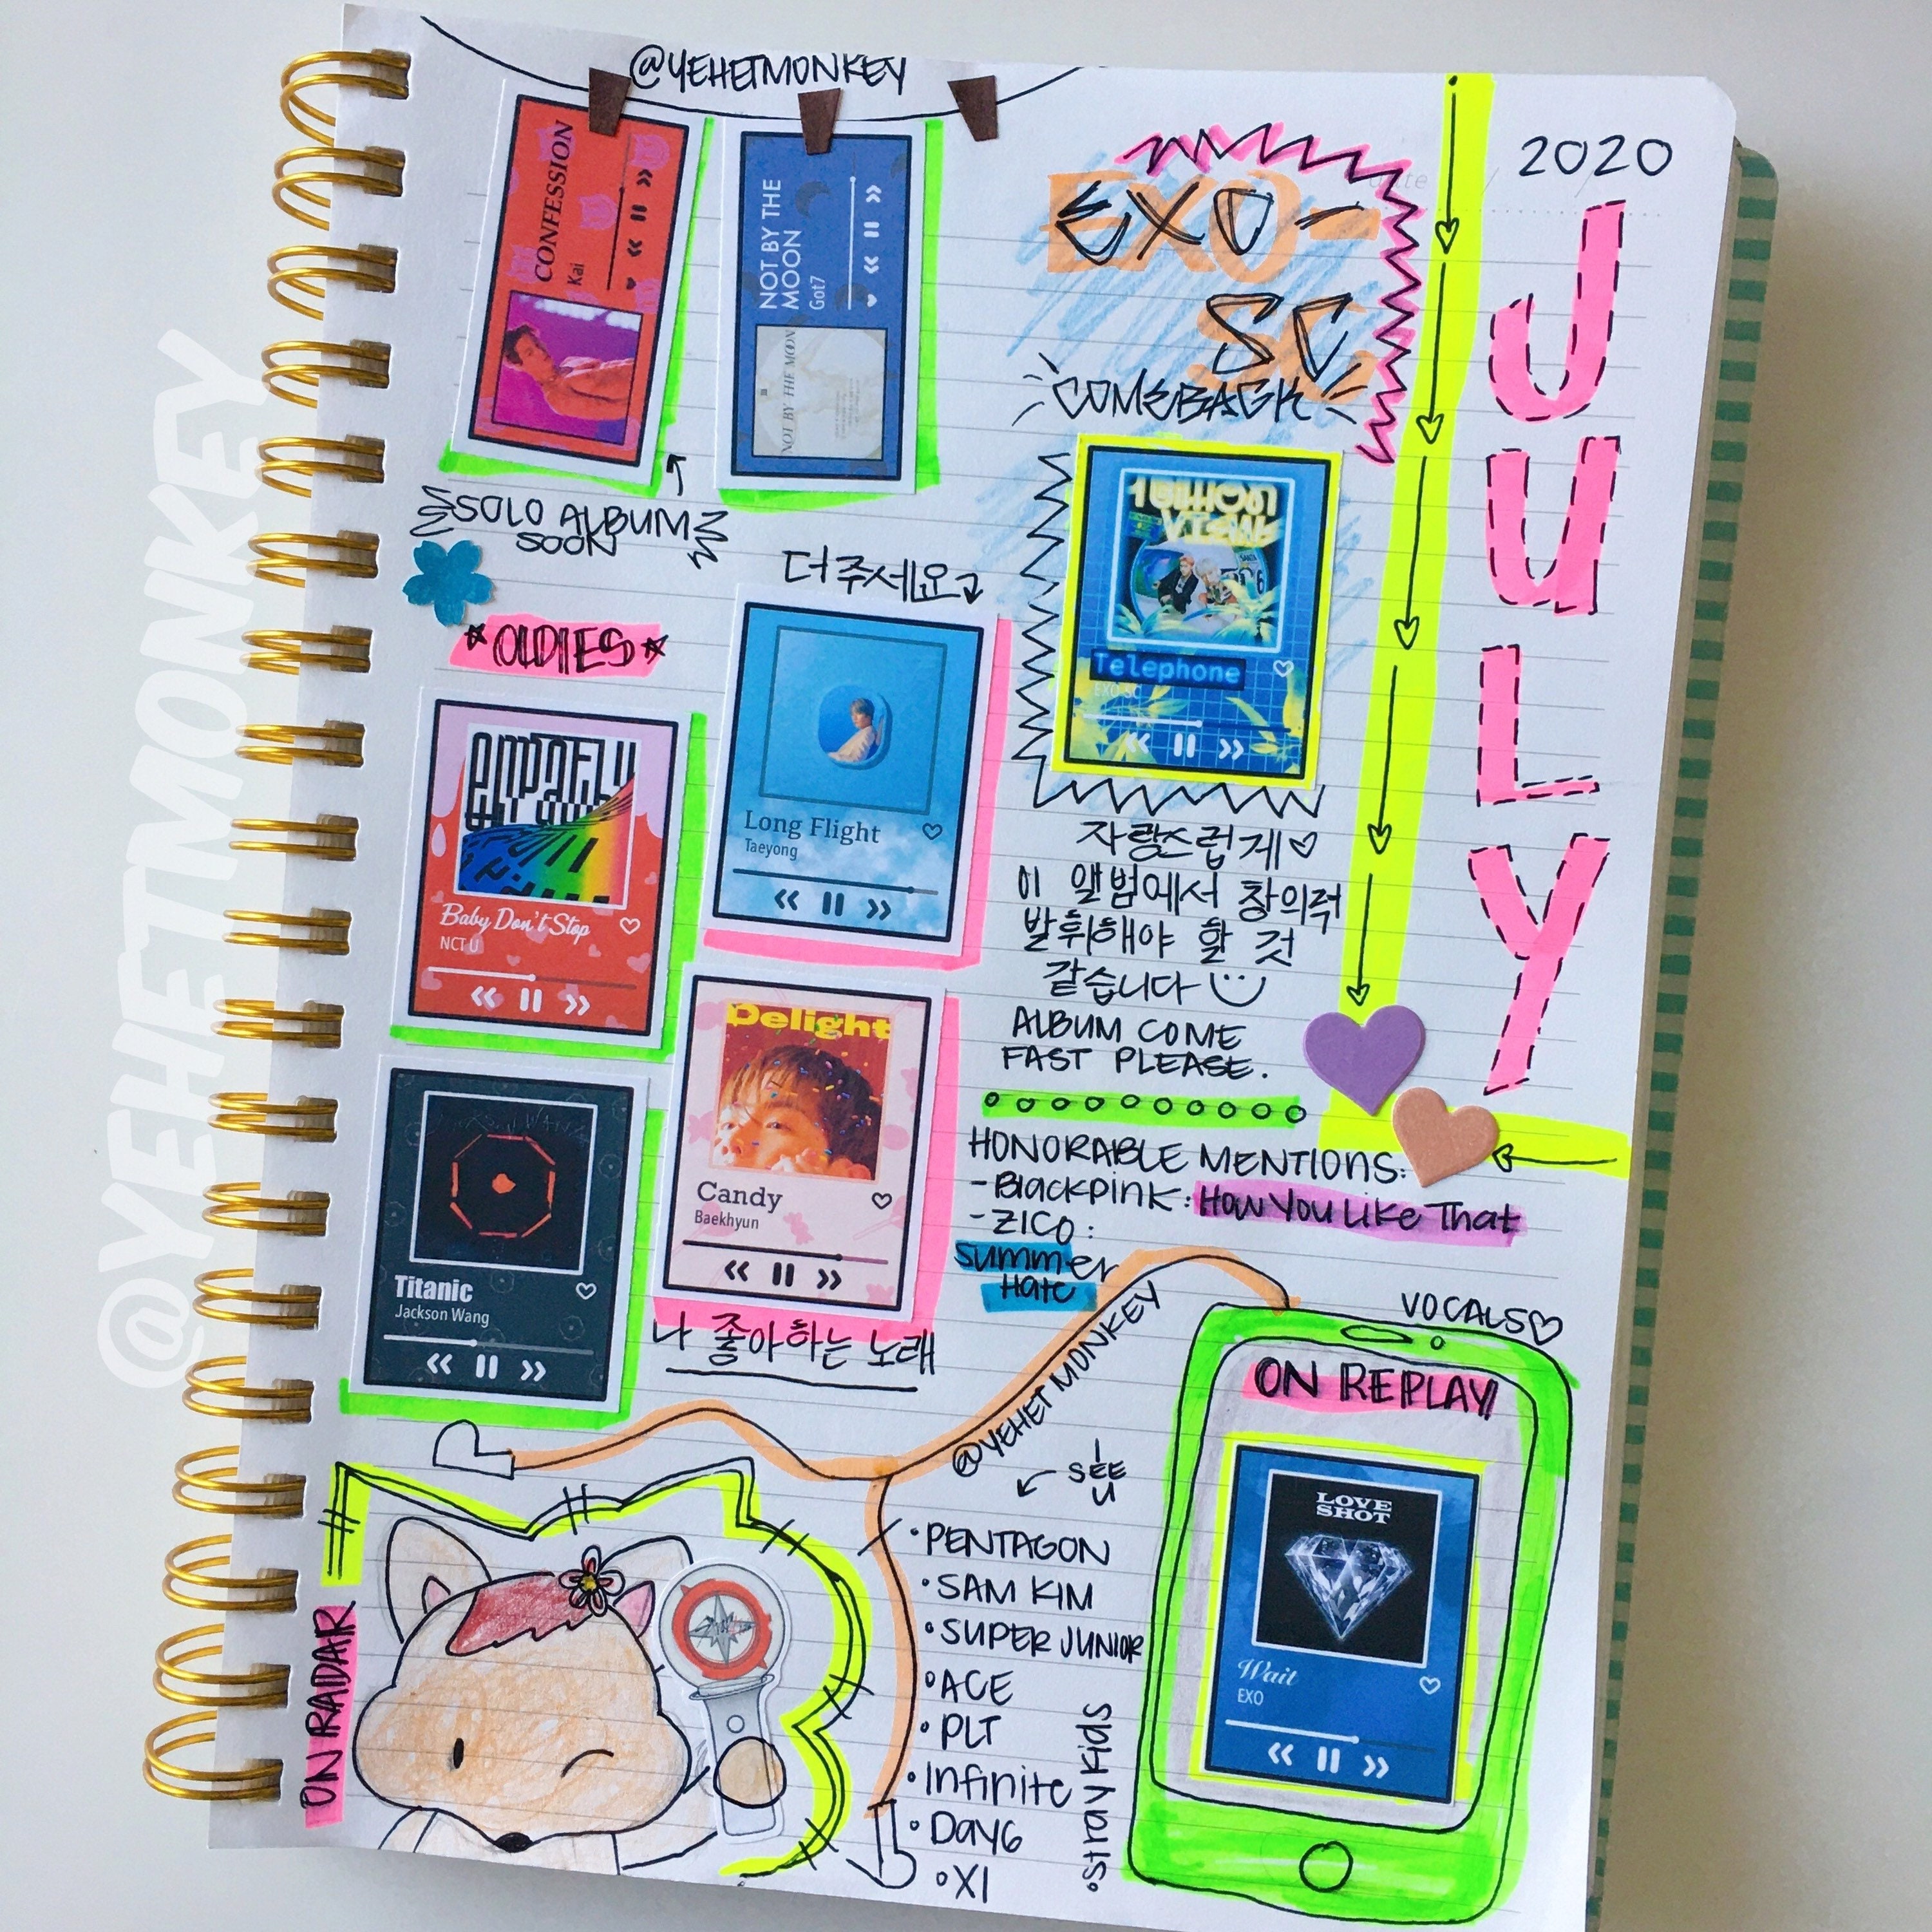 @YEHETMONKEY
@YEHETMONKEY
2020
JULY
CONFESSION
Kai
NOT BY THE
MOON
Got7
NOT BY THE MOON
SOLO ALBUM
SOON
EXO-
SC
COMEBACK
Telephone
EXO SC
자랑스럽게♡
이 앨범에서 창의력
발휘해야 할 것
같습니다
ALBUM COME
FAST PLEASE.
더 주세요
Long Flight
Taeyong
*OLDIES*
empathy
Baby Don't Stop
NCT U
Delight
Candy
Baekhyun
나 좋아하는 노래
Titanic
Jackson Wang
HONORABLE MENTIONS:
-Blackpink: How You Like That
-ZICO:
Summer
Hate
@YEHETMONKEY
VOCALS♡
ON REPLAY
LOVE
SHOT
Wait
EXO
I
SEE
U
•PENTAGON
•SAM KIM
•SUPER JUNIOR
•ACE
•PLT
•Infinite
•DAY6
•X1
•Stray Kids
ON RADAR